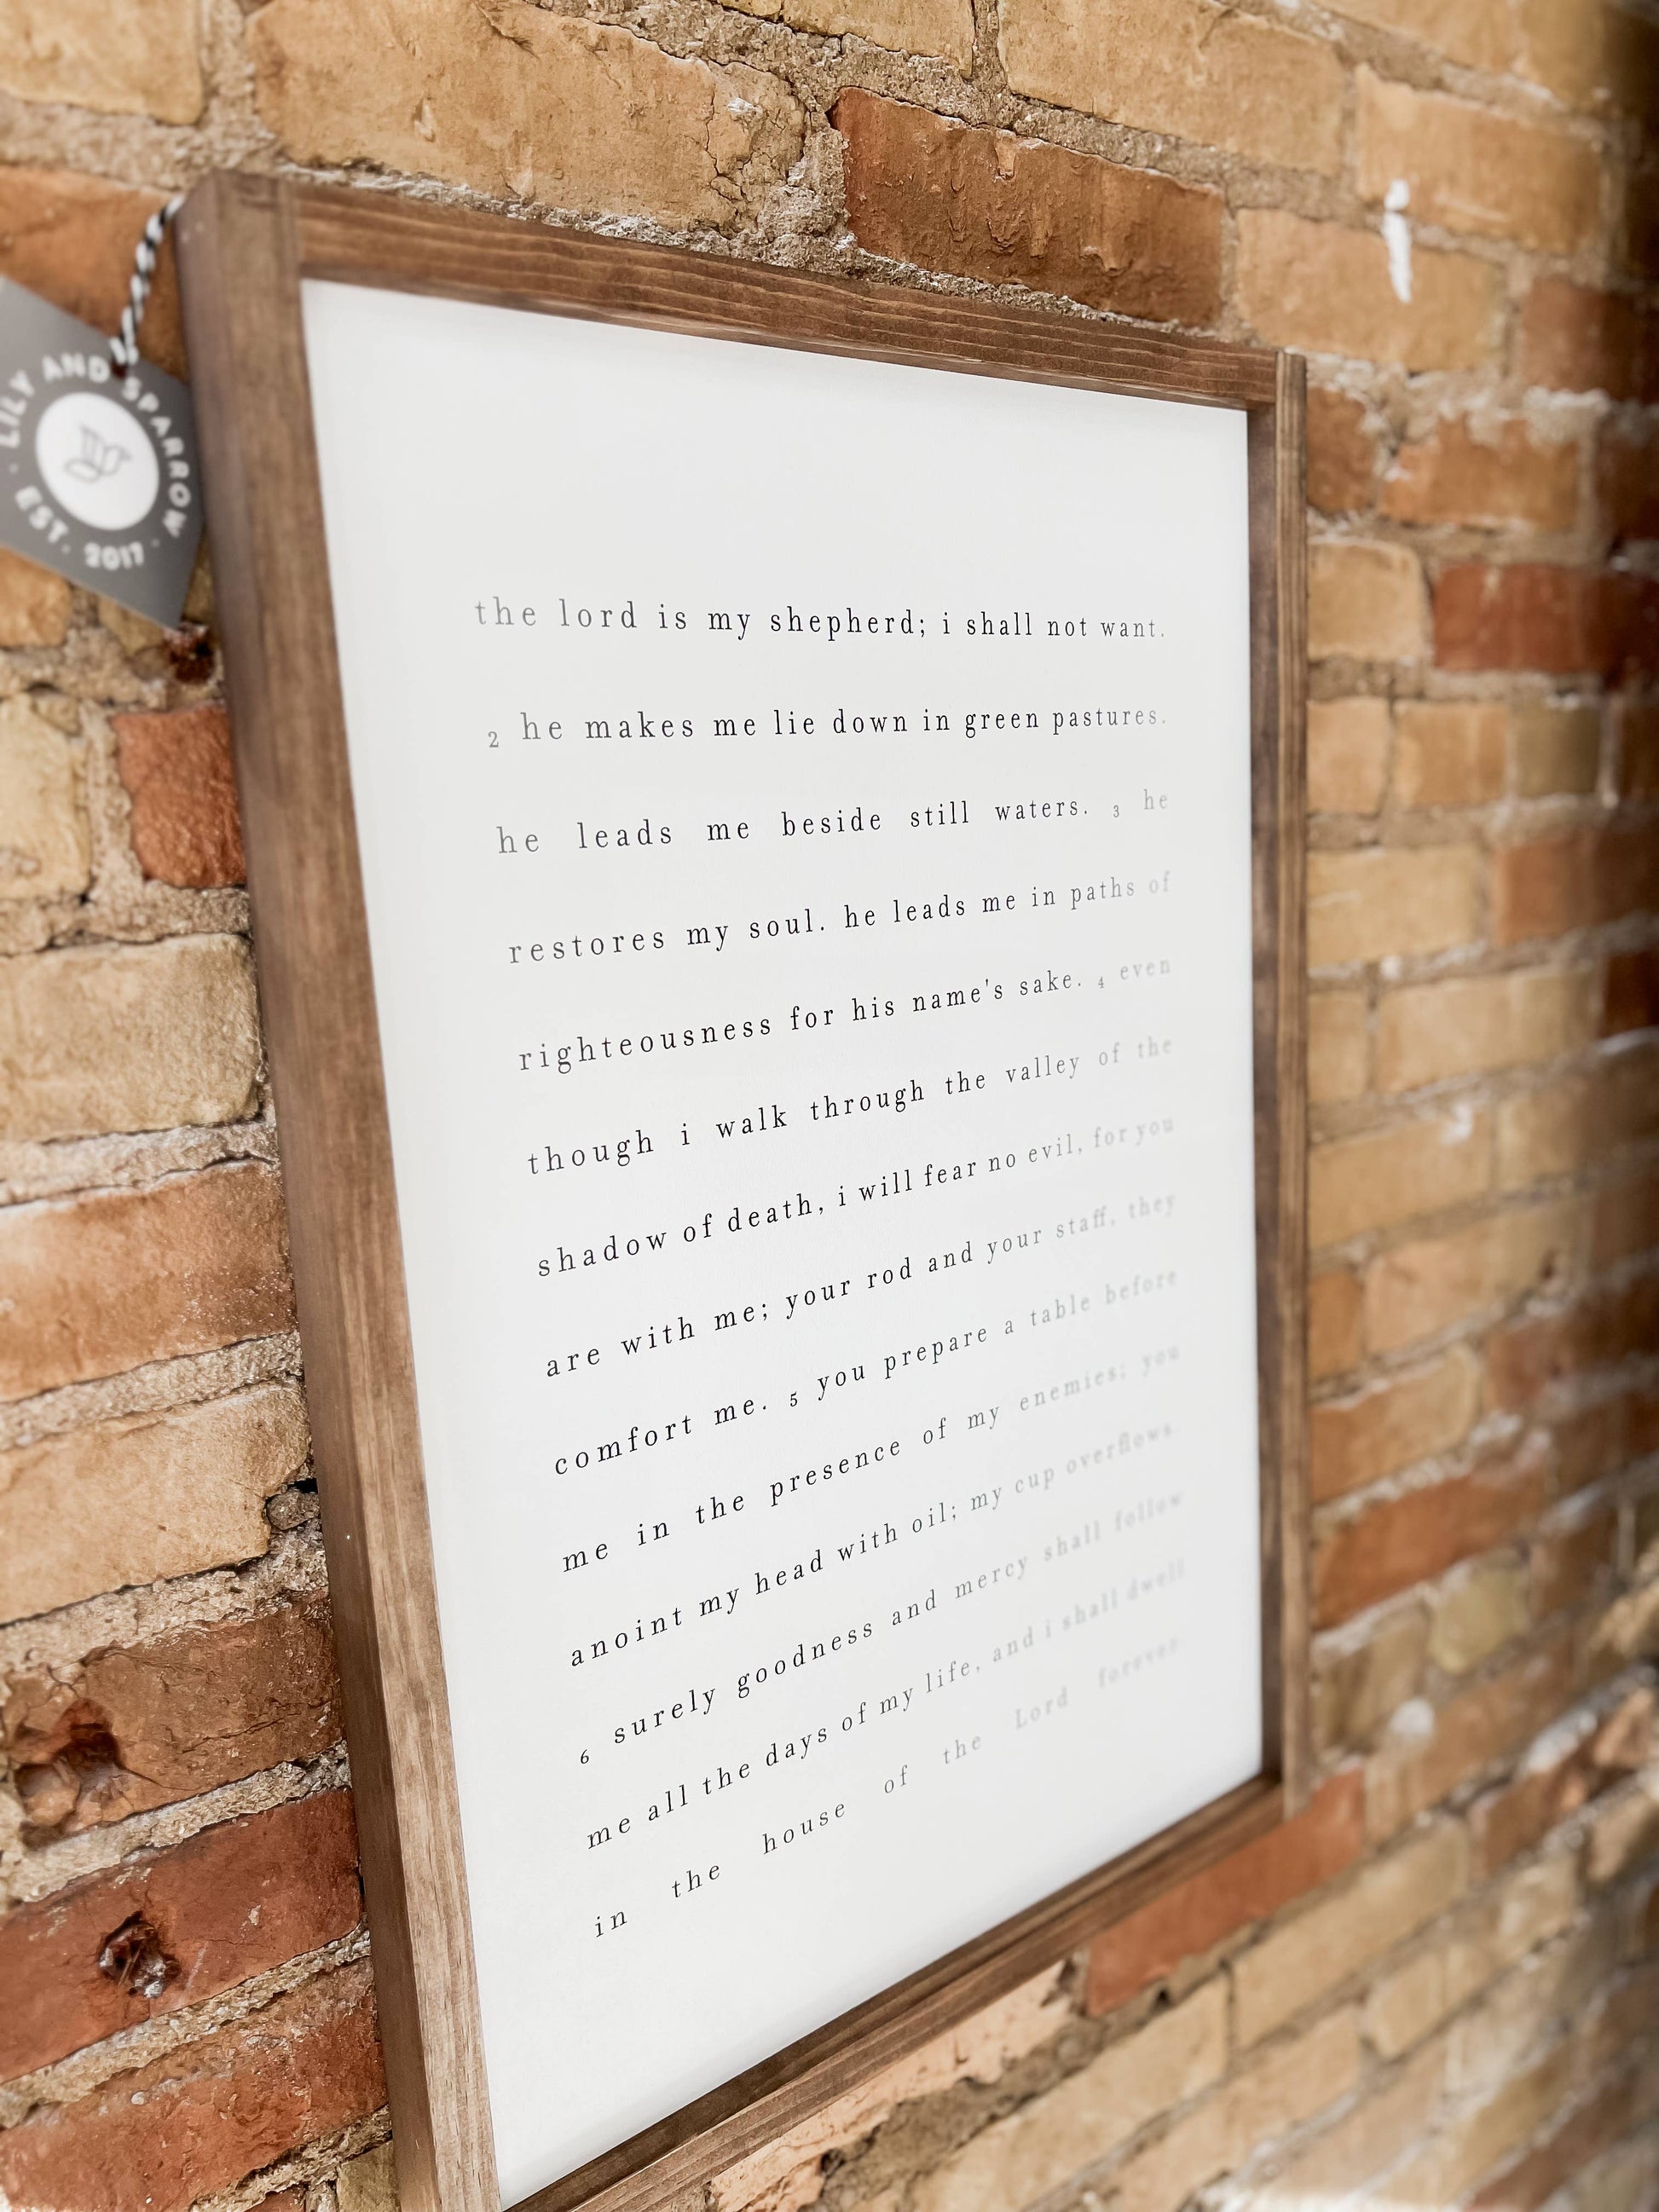 LILY AND SPARROW
· EST. 2017 ·
the lord is my shepherd; i shall not want.
2 he makes me lie down in green pastures.
he leads me beside still waters. 3 he
restores my soul. he leads me in paths of
righteousness for his name's sake. 4 even
though i walk through the valley of the
shadow of death, i will fear no evil, for you
are with me; your rod and your staff, they
comfort me. 5 you prepare a table before
me in the presence of my enemies; you
anoint my head with oil; my cup overflows.
6 surely goodness and mercy shall follow
me all the days of my life, and i shall dwell
in the house of the Lord forever